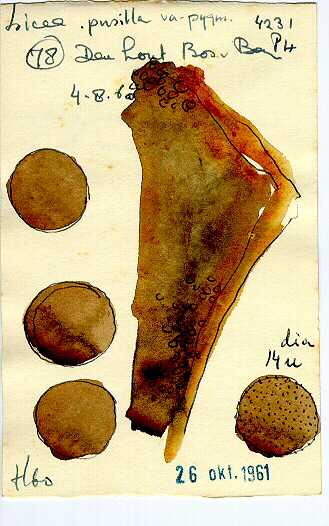 Licea pusilla va-pygm. 4231
78 Den hout Bos v Ba PH
4.8.60
dia
14 u
H60
26 okt. 1961